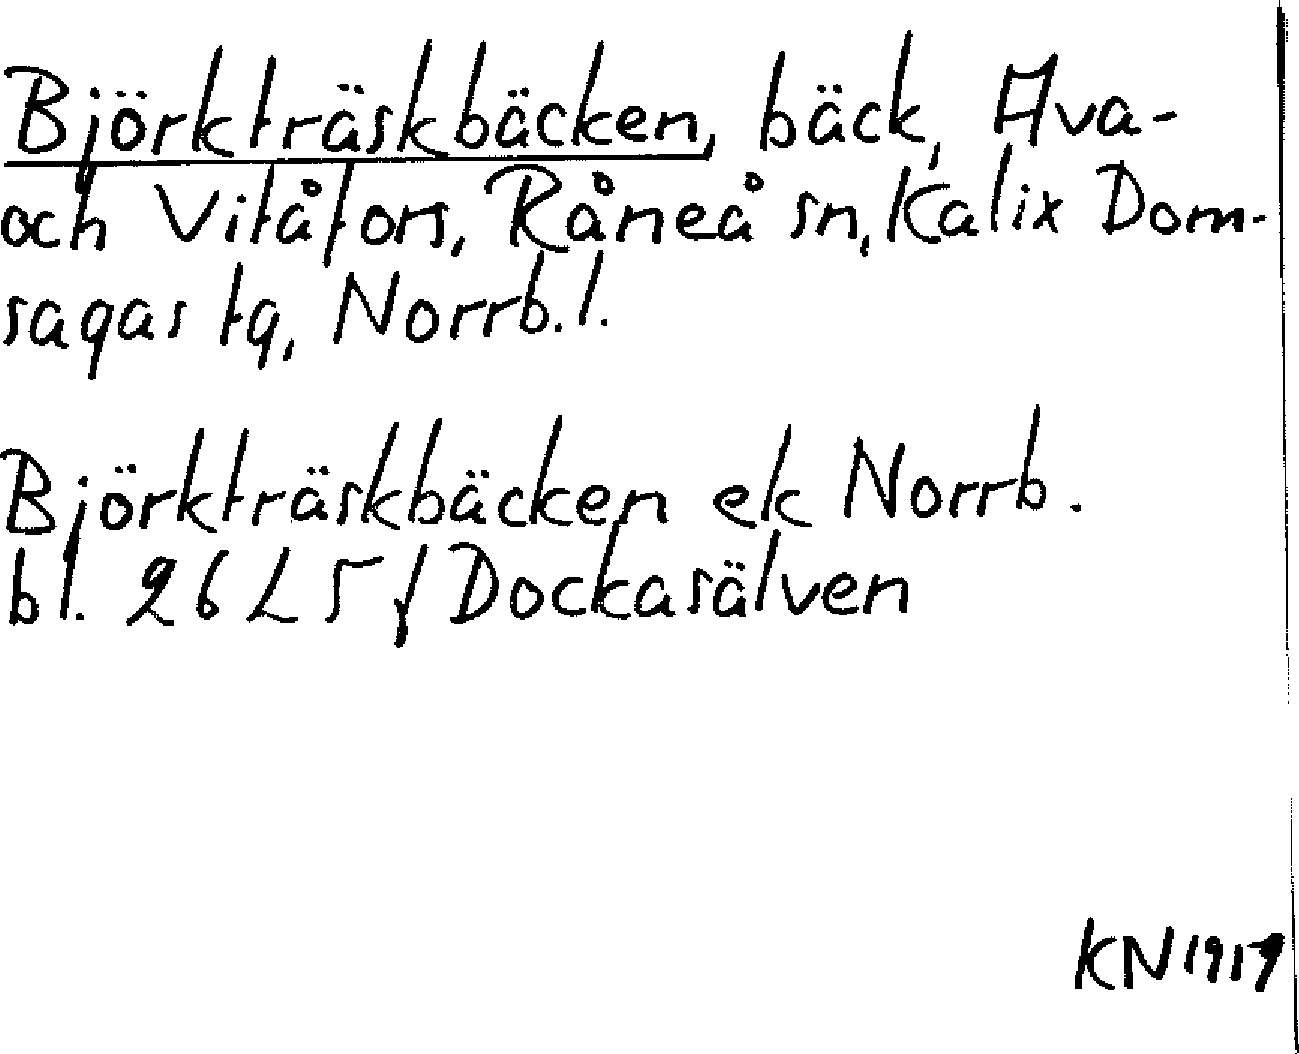 Björkträskbäcken, bäck, Ava-
och Vitåfors, Råneå sn, Kalix Dom-
sagas tg, Norrb. l.
Björkträskbäcken ek Norrb.
bl. 26 L 5 f Dockasälven
KN 1919